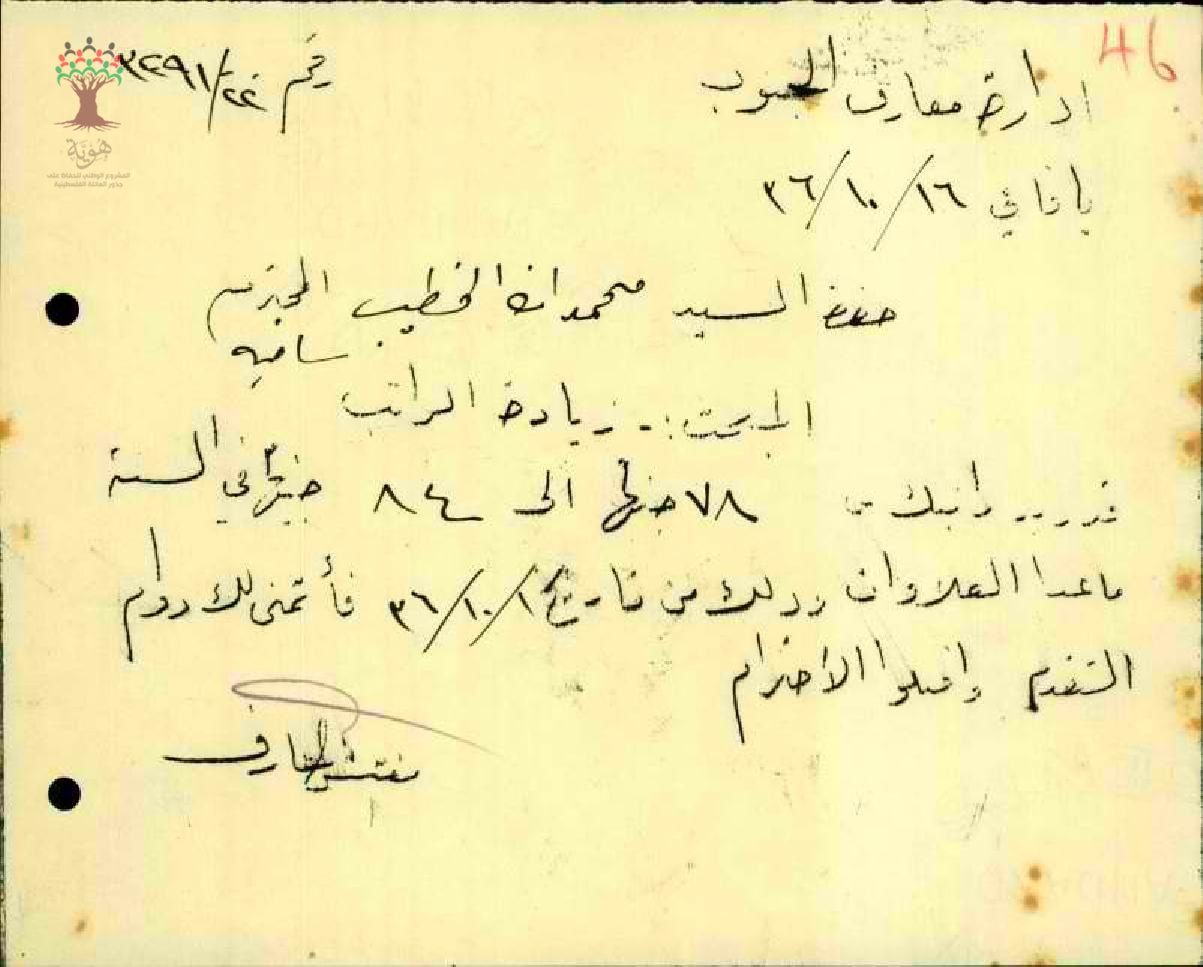 46
ادارة معارف الجنوب
رقم ٣٢٩١/٢٢
يافا في ١٦/١٠/٣٦
هوية
المشروع الوطني للحفاظ على
جذور العائلة الفلسطينية
حضرة السيد محمد الخطيب المحترم
المبحث :- زيادة الراتب
راتبك من ٧٨ جنيها الى ٨٤ جنيها في السنة
ما عدا العلاوات وذلك من تاريخ ١/١٠/٣٦ فأتمنى لك دوام
التقدم واقبلوا الاحترام
مفتش المعارف